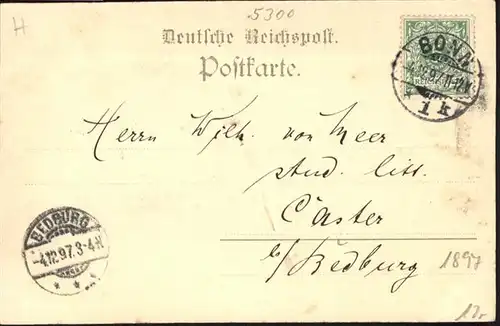 H
5300
Deutsche Reichspost.
Postkarte.
BONN
4.12.97.11-12V.
* 1 k
Herrn Wilh. von Meer
stud. litt.
Caster
b/Bedburg
BEDBURG
4.12.97.3-4N
* *
1897
12,-